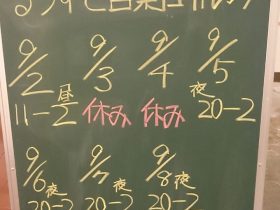 9/2 9/3 9/4 9/5
昼 夜
11-2 休み 休み 20-2
9/6 9/7 9/8
夜 夜 夜
20-2 20-2 20-2